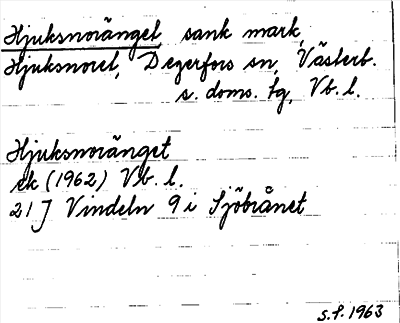 Hjuksnoränget sank mark,
Hjuksnoret, Degerfors sn, Västerb.
s. doms. tg, Vb. l.
Hjuksnoränget
ek (1962) Vb. l.
21J Vindeln 9i Sjöbrånet
S.F. 1963